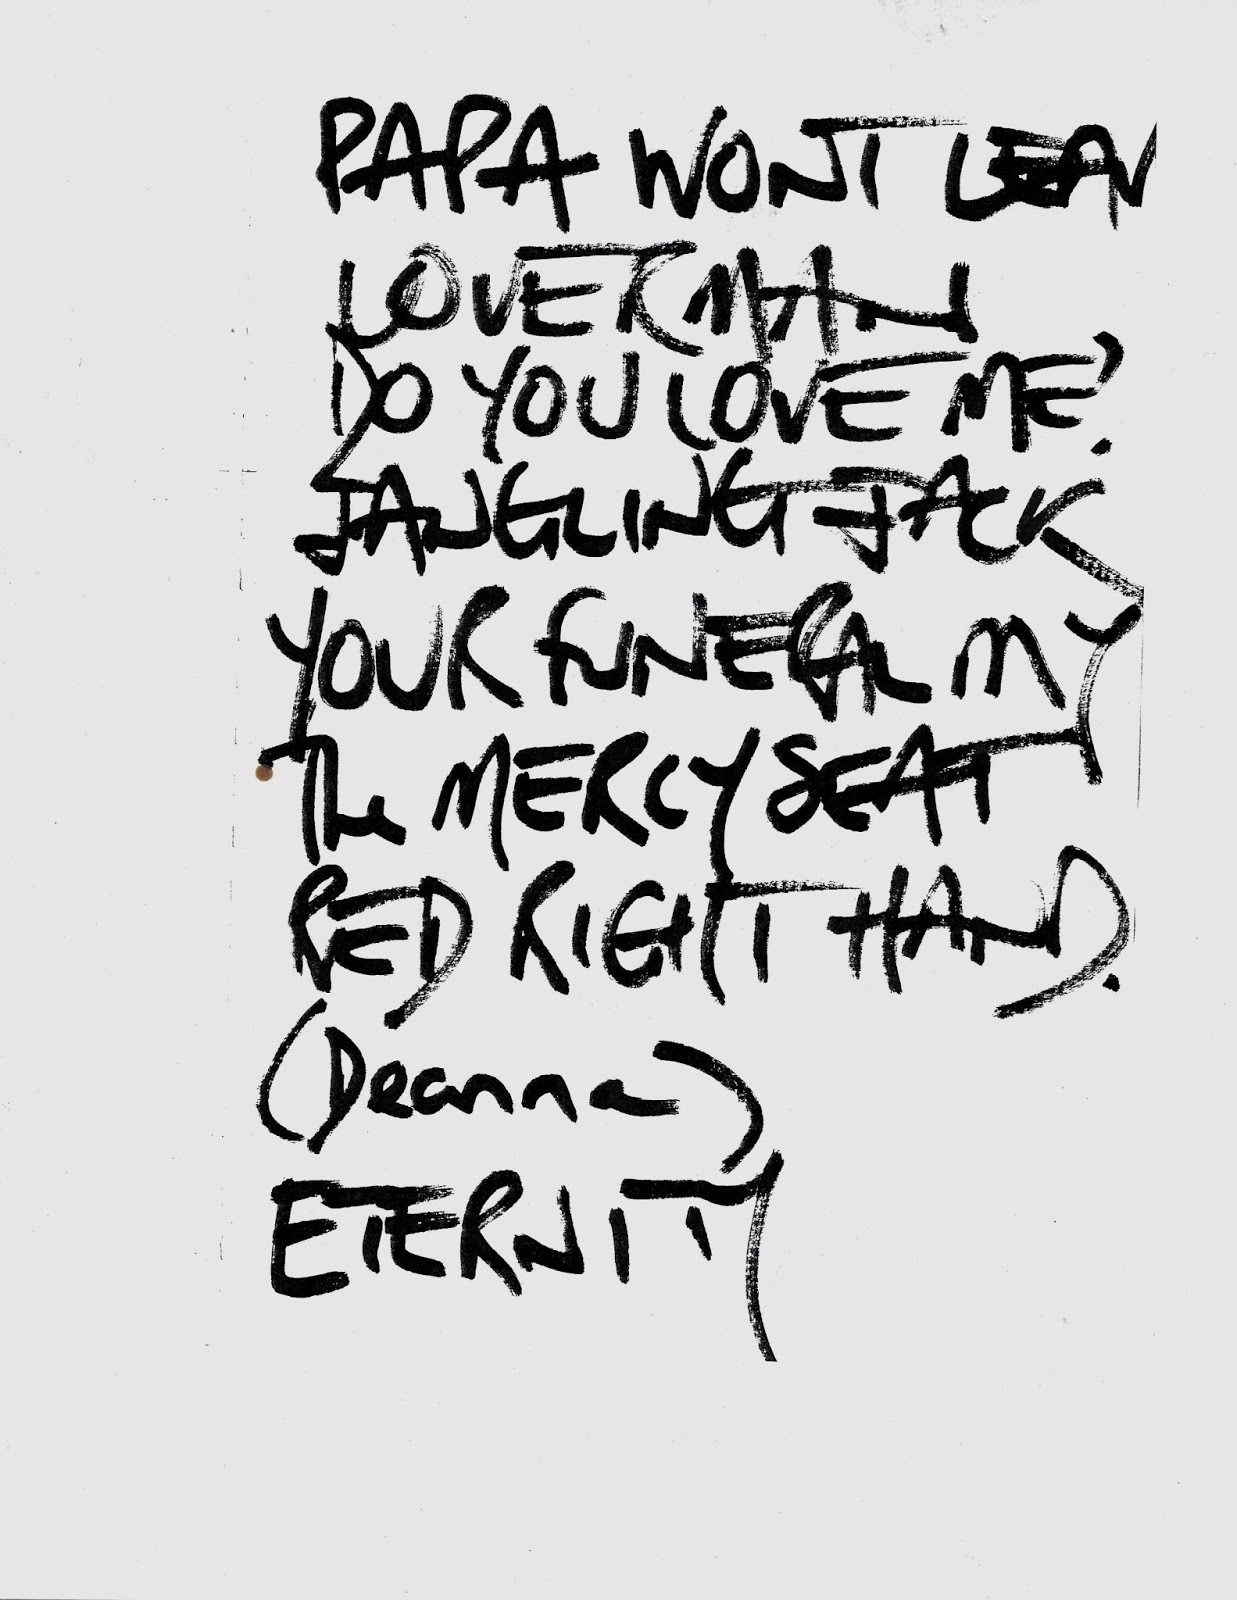 PAPA WONT LEAV
LOVERMAN
DO YOU LOVE ME?
JANGLING JACK
YOUR FUNERAL MY
The MERCY SEAT
RED RIGHT HAND.
(Deanna)
ETERNITY